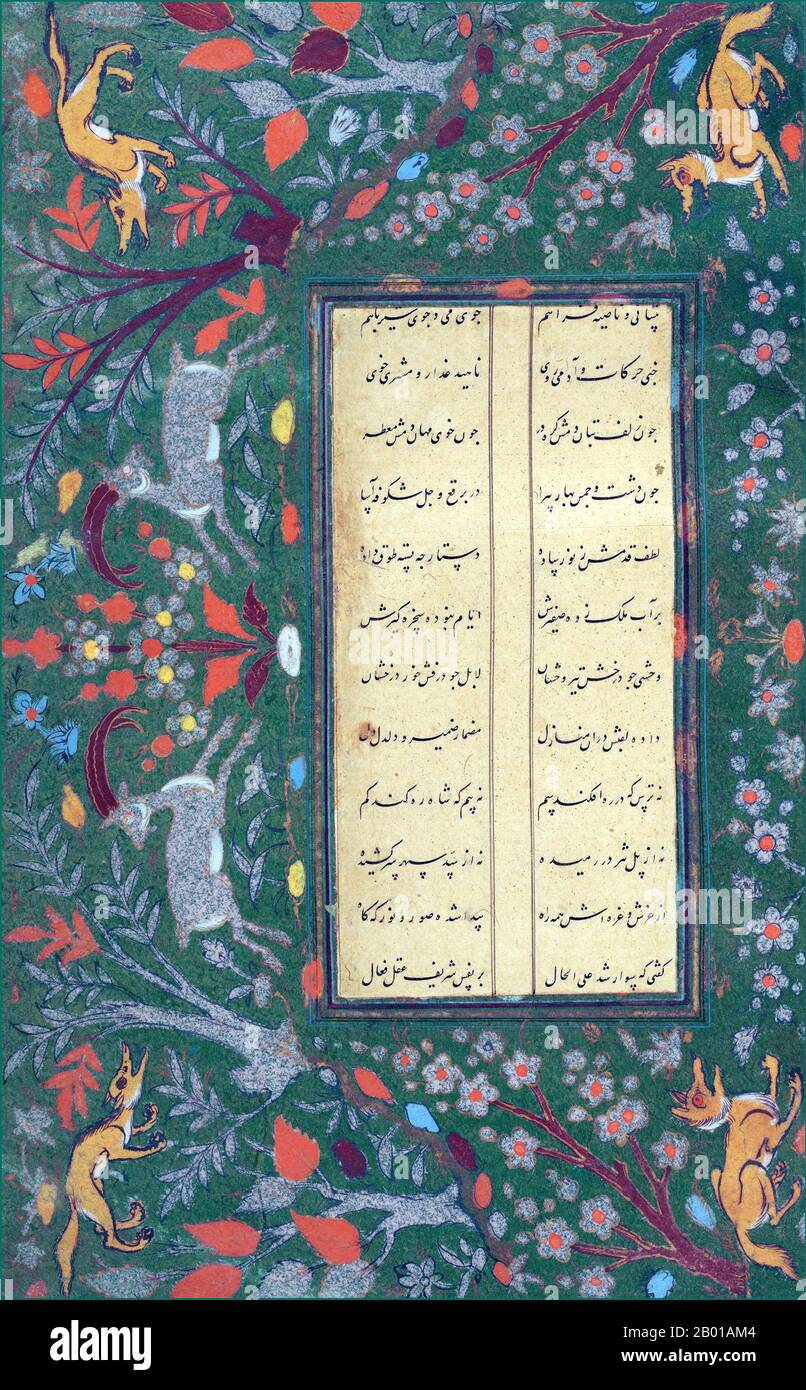 پیشانی و ناصیه فراهم جوی می و جوی شیر باهم
جنی حرکات و آدمی روی ناهید عذار و مشتری خوی
جون زلف بتان دمش کره در جون خوی مهان دمش معطر
جون دشت و جمن بهار پیرا در برقع و جل شکوفه آسا
لطف قدمش ز نور پیاده دستارجه بسته طوق داده
بر آب ملک زده صفیرش ایام نبوده سخره کیرش
وحشی جو درخش تیر وخشان لابل جو درفش خور درخشان
داده لقبش در آن منازل مضمار ضمیر و دلدل دل
نه ترس که در ره افکند سم نه بیم که شاه ره کند کم
نه از پل تر در رمیده نه از سپر کشیده
از غرش و غره اش همه راه پیدا شده صور و نور که کاه
کفتی که سوار شد علی الحال بر نفس شریف عقل فعال
alamy
Image ID: 2B01AM4
www.alamy.com